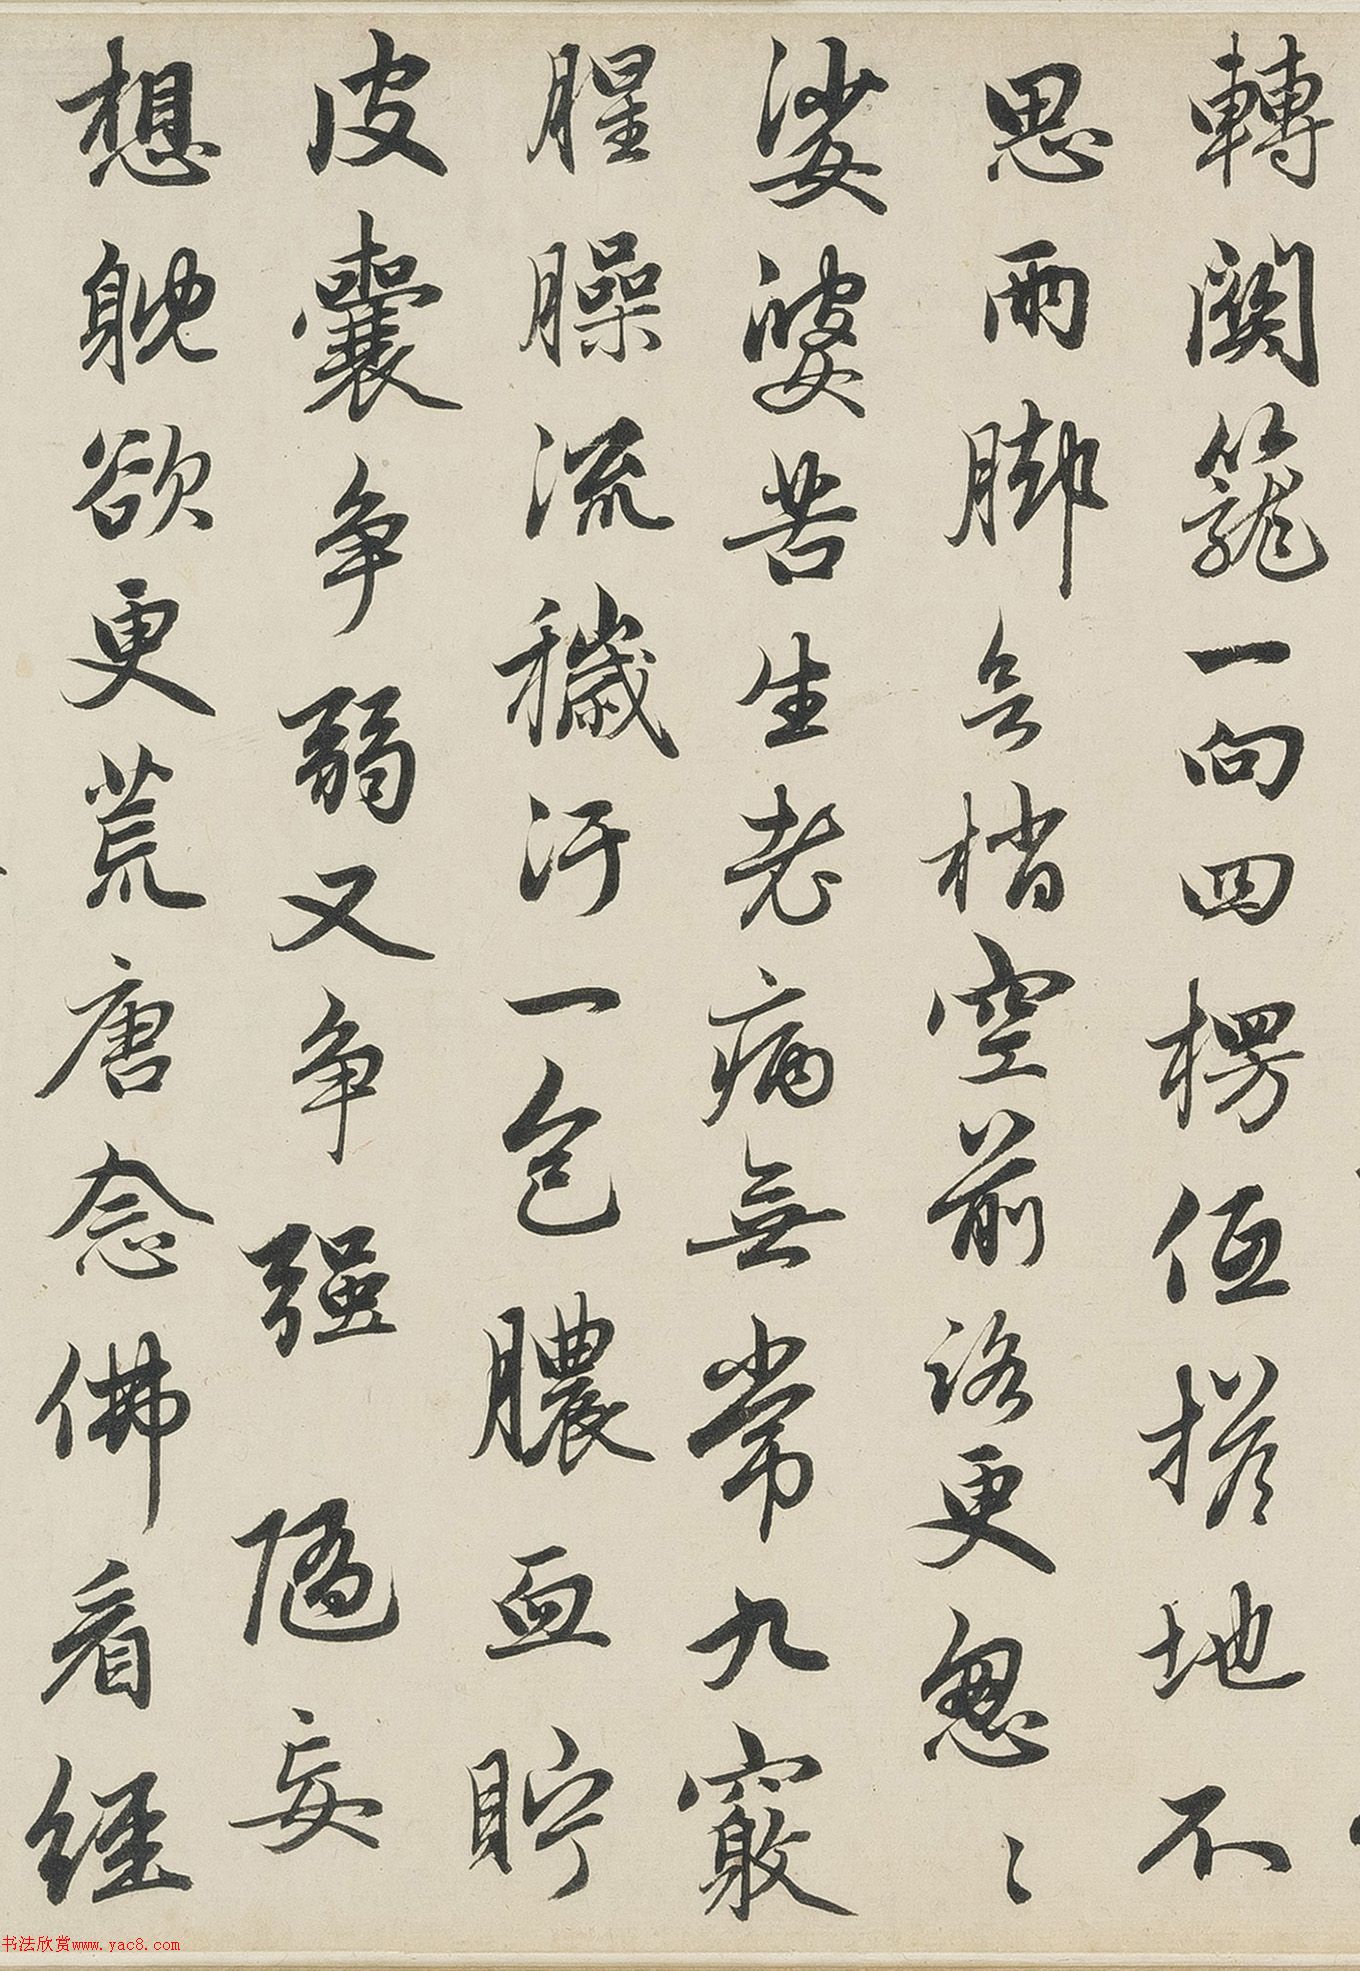 轉關籠一向四楞低搭地不
思兩脚無梢空前路更怱〻
娑婆苦生老病無常九竅
腥臊流穢汙一包膿血貯
皮囊爭弱又爭强 隨妄
想躭欲更荒唐念佛看經
书法欣赏www.yac8.com